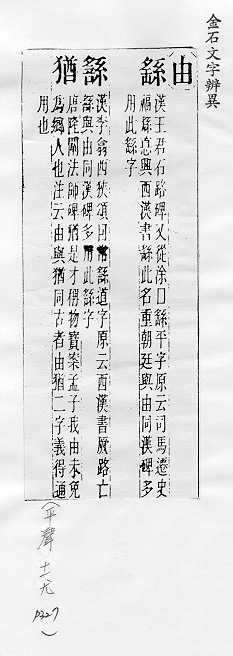 金石文字辨異
由
䌛
漢王君石路碑又從涂口䌛平字原云司馬遷史
福䌛息與西漢書䌛此名重朝廷與由同漢碑多
用此䌛字
䌛
漢李翕西狹頌曰常䌛道字原云西漢書厥路亡
䌛與由同漢碑多用此䌛字
猶
唐隆闡法師碑猶是才僧物寶案孟子我由未免
爲鄉人也注云由與猶同古者由猶二字義得通
用也
(平聲 十一尤 P327)